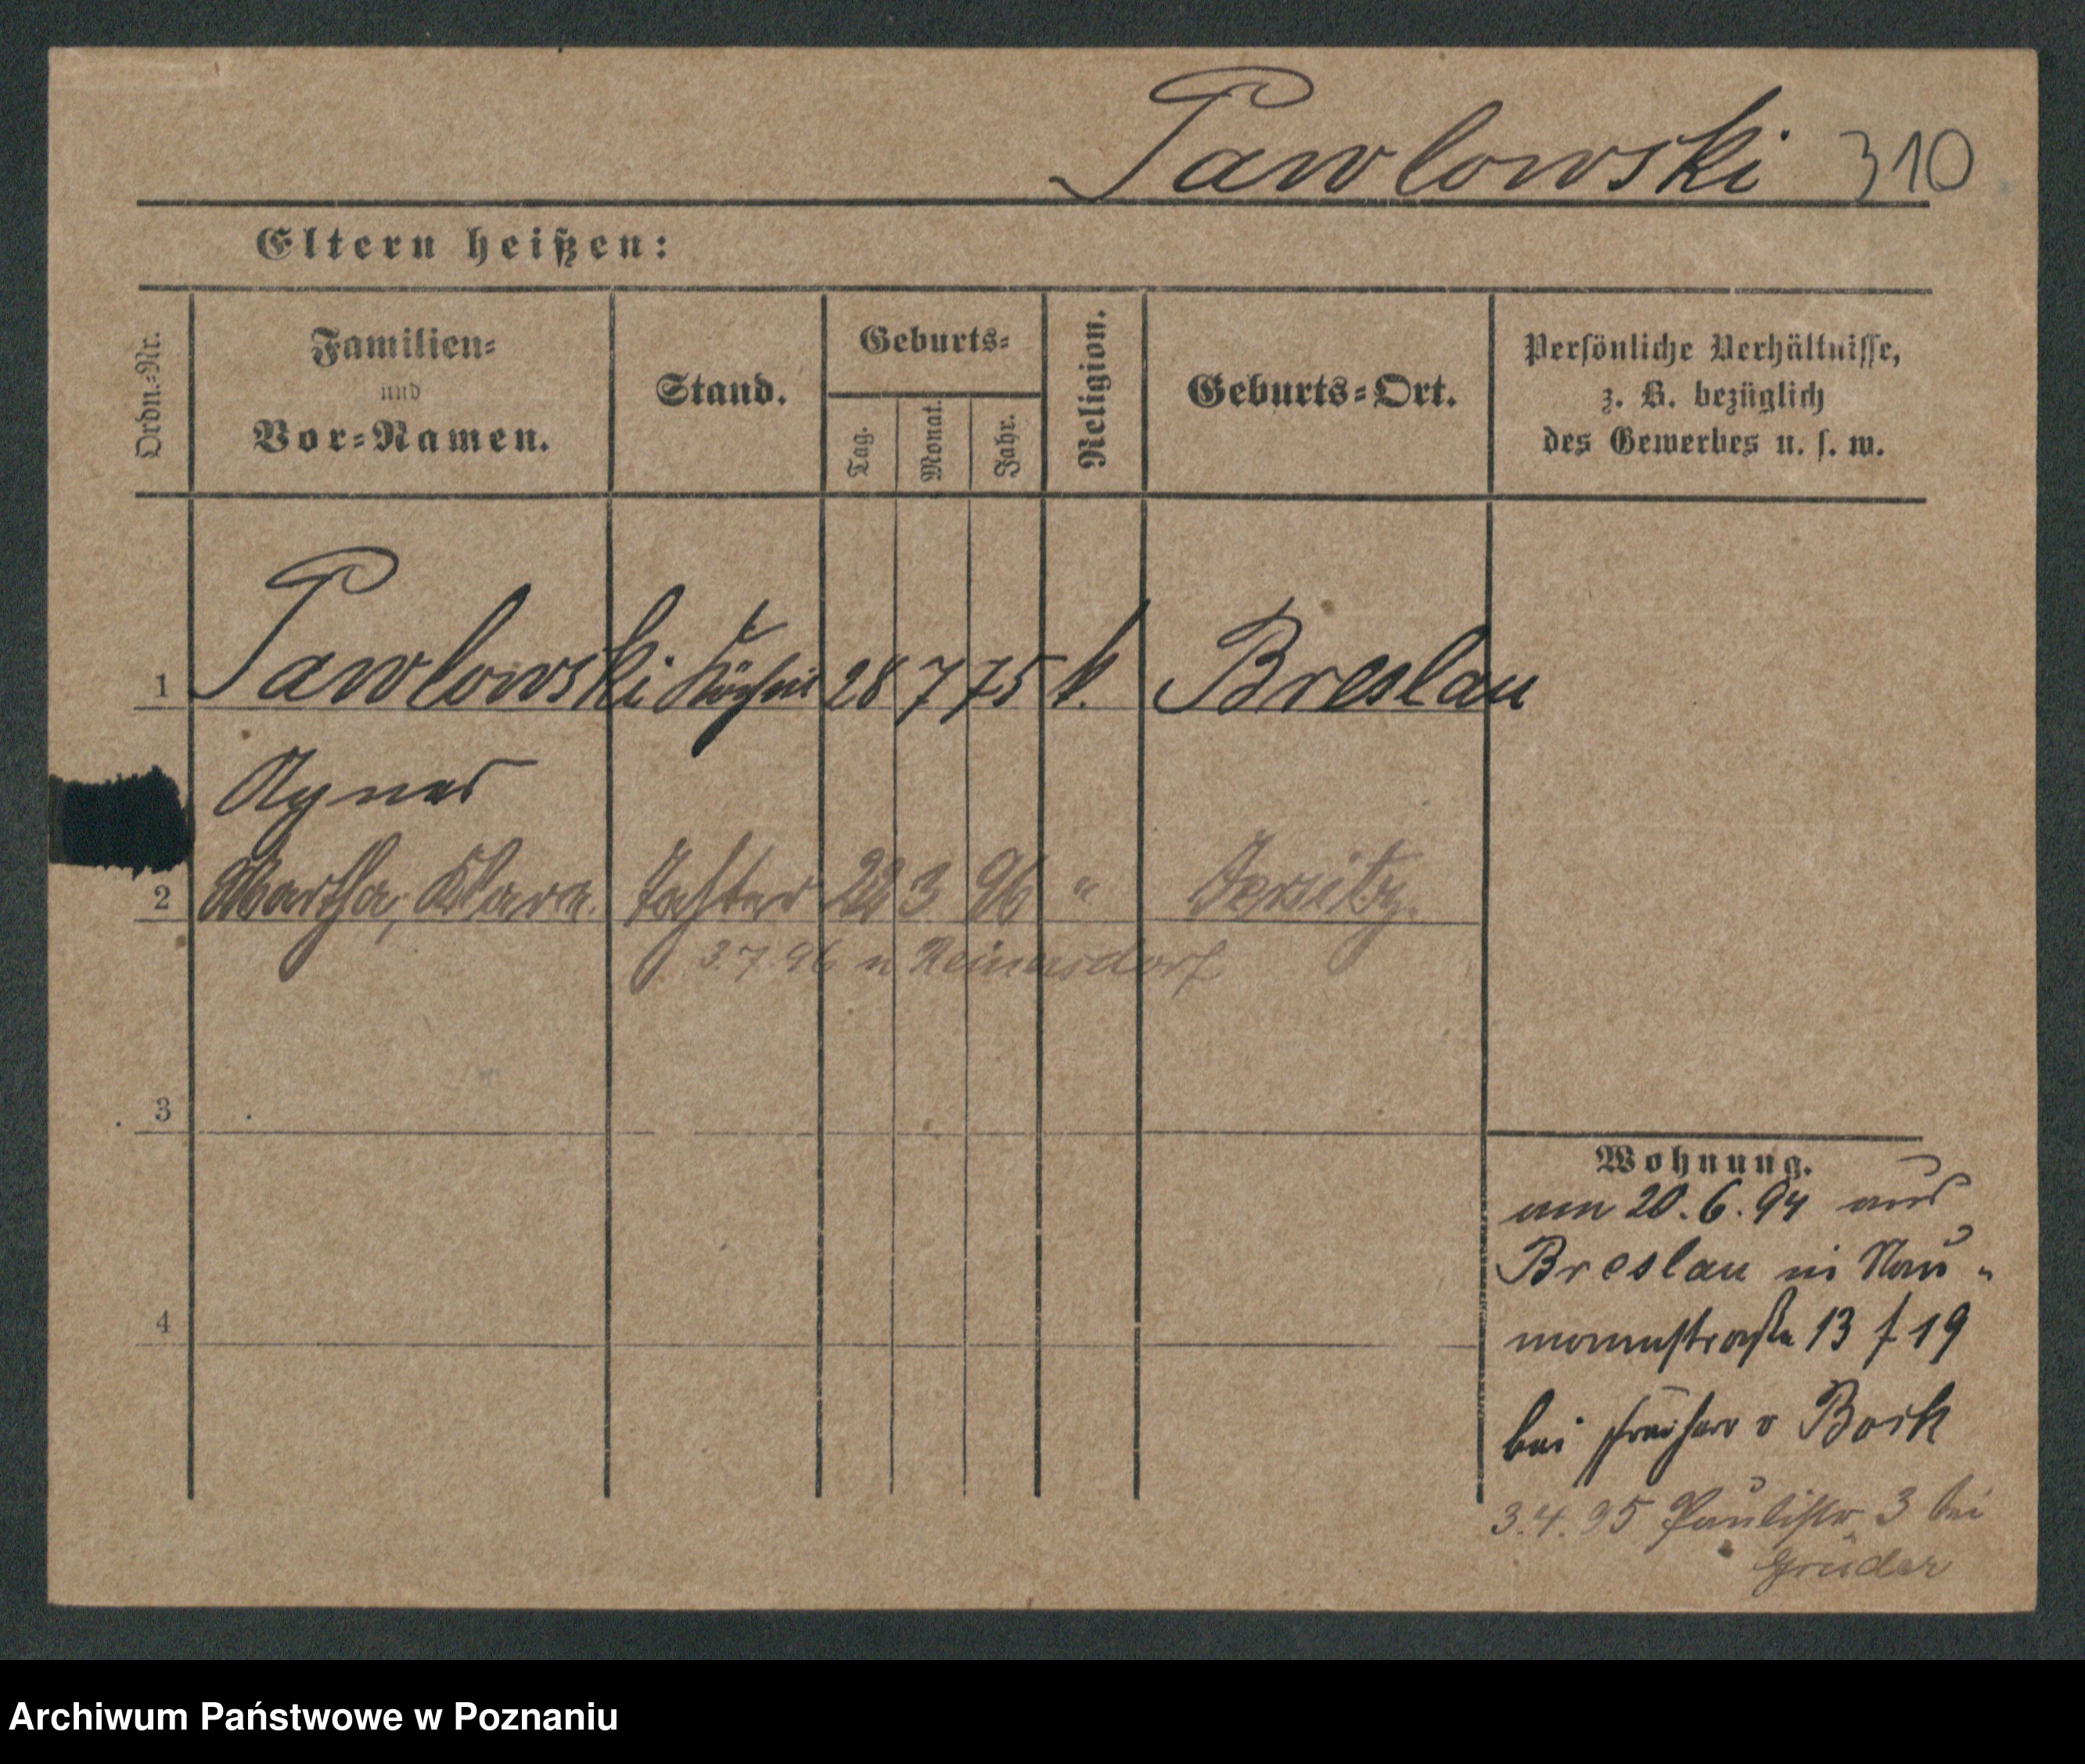 Pawlowski 310
Eltern heißen:
Ordn.-Nr.
Familien-
und
Vor-Namen.
Stand.
Geburts-
Tag.
Monat.
Jahr.
Religion.
Geburts-Ort.
Persönliche Verhältnisse,
z. B. bezüglich
des Gewerbes u. s. w.
1 Pawlowski Köchin 28 7 75 k. Breslau
Agnes
2 Martha, Klara. Tochter 22 3 96 " Jersitz.
3.7.96 n Reimersdorf
3
4
Wohnung.
am 20.6.94 aus
Breslau in Nau-
mannstraße 13 f 19
bei Freiherr v Bock
3.4.95 Paulistr. 3 bei
Grüder
Archiwum Państwowe w Poznaniu